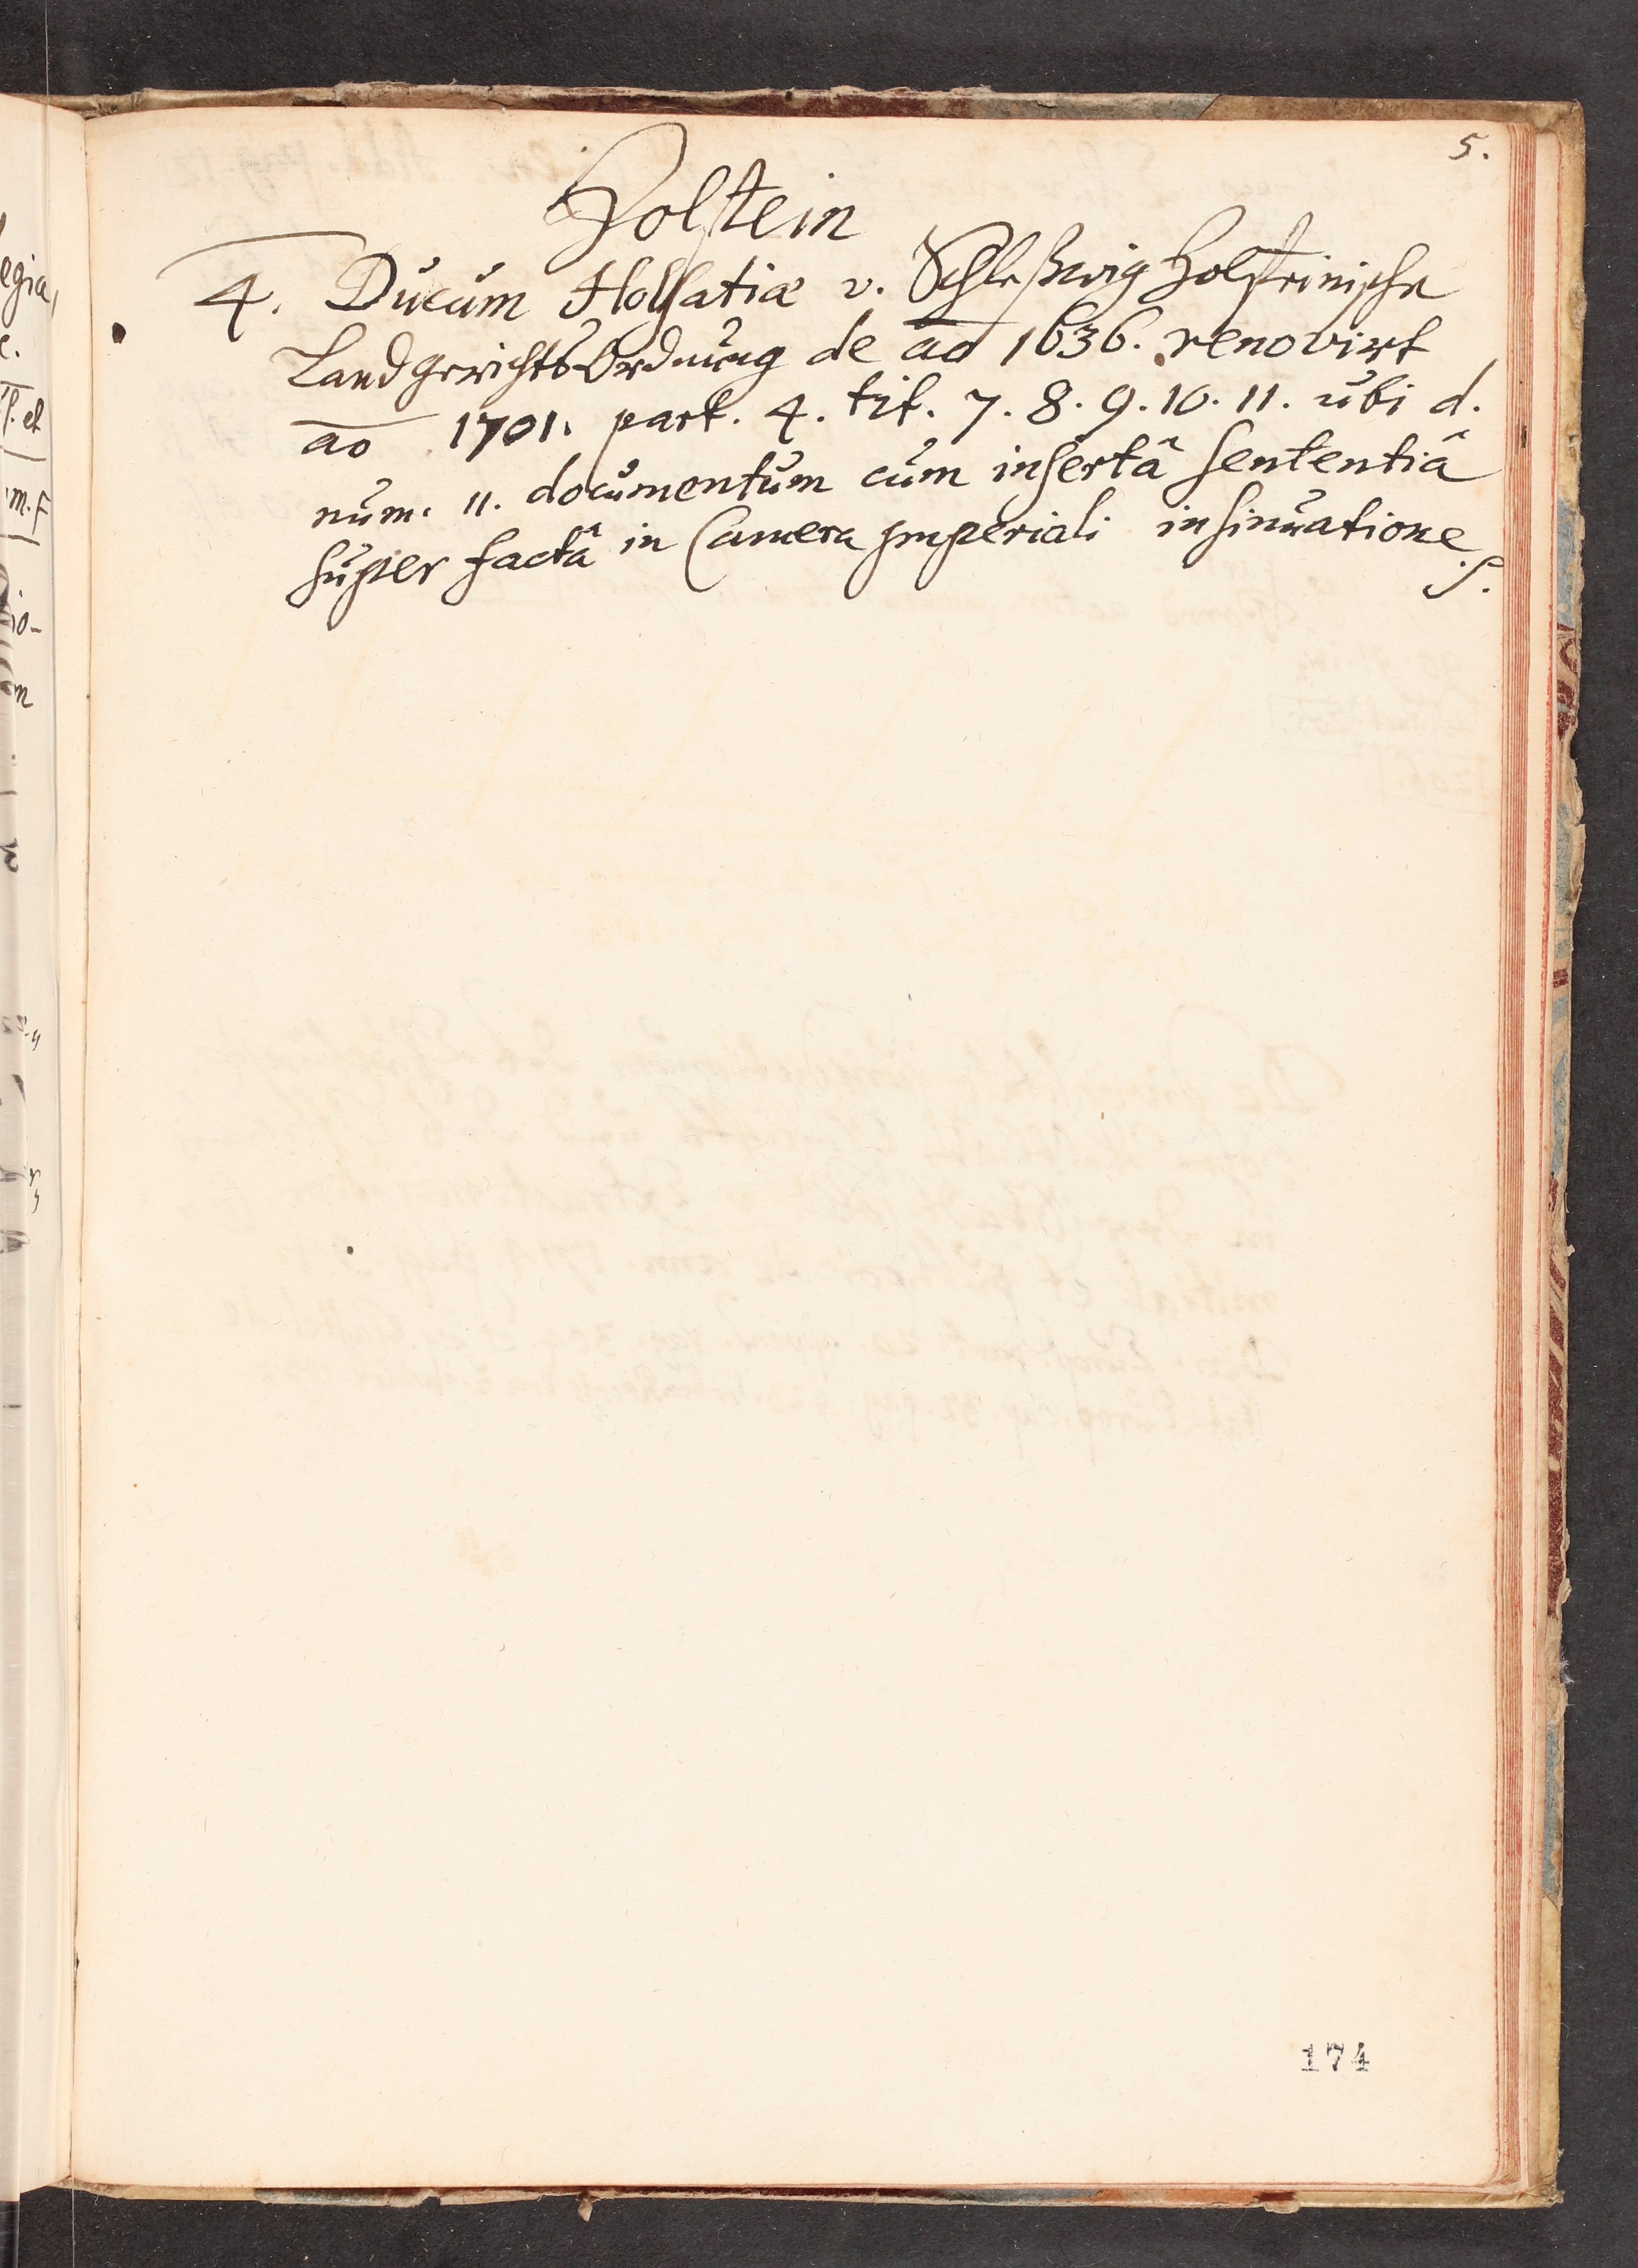 5.
Holstein
4. Ducum Holsatiæ v. Schleßwig Holsteinische
LandgerichtsOrdnung de ao 1636. renovirt
ao 1701. part. 4. tit. 7. 8. 9. 10. 11. ubi d.
num. 11. documentum cum insertâ sententiâ
super factâ in Camera Imperiali insinuatione
S.
174